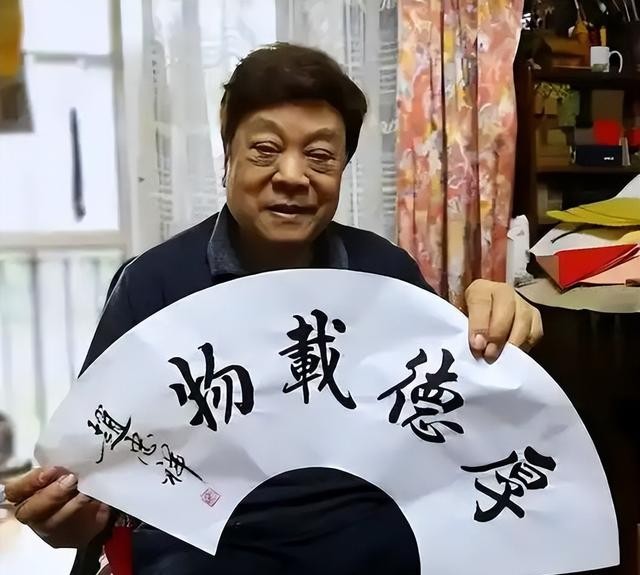 厚德載物
趙忠祥